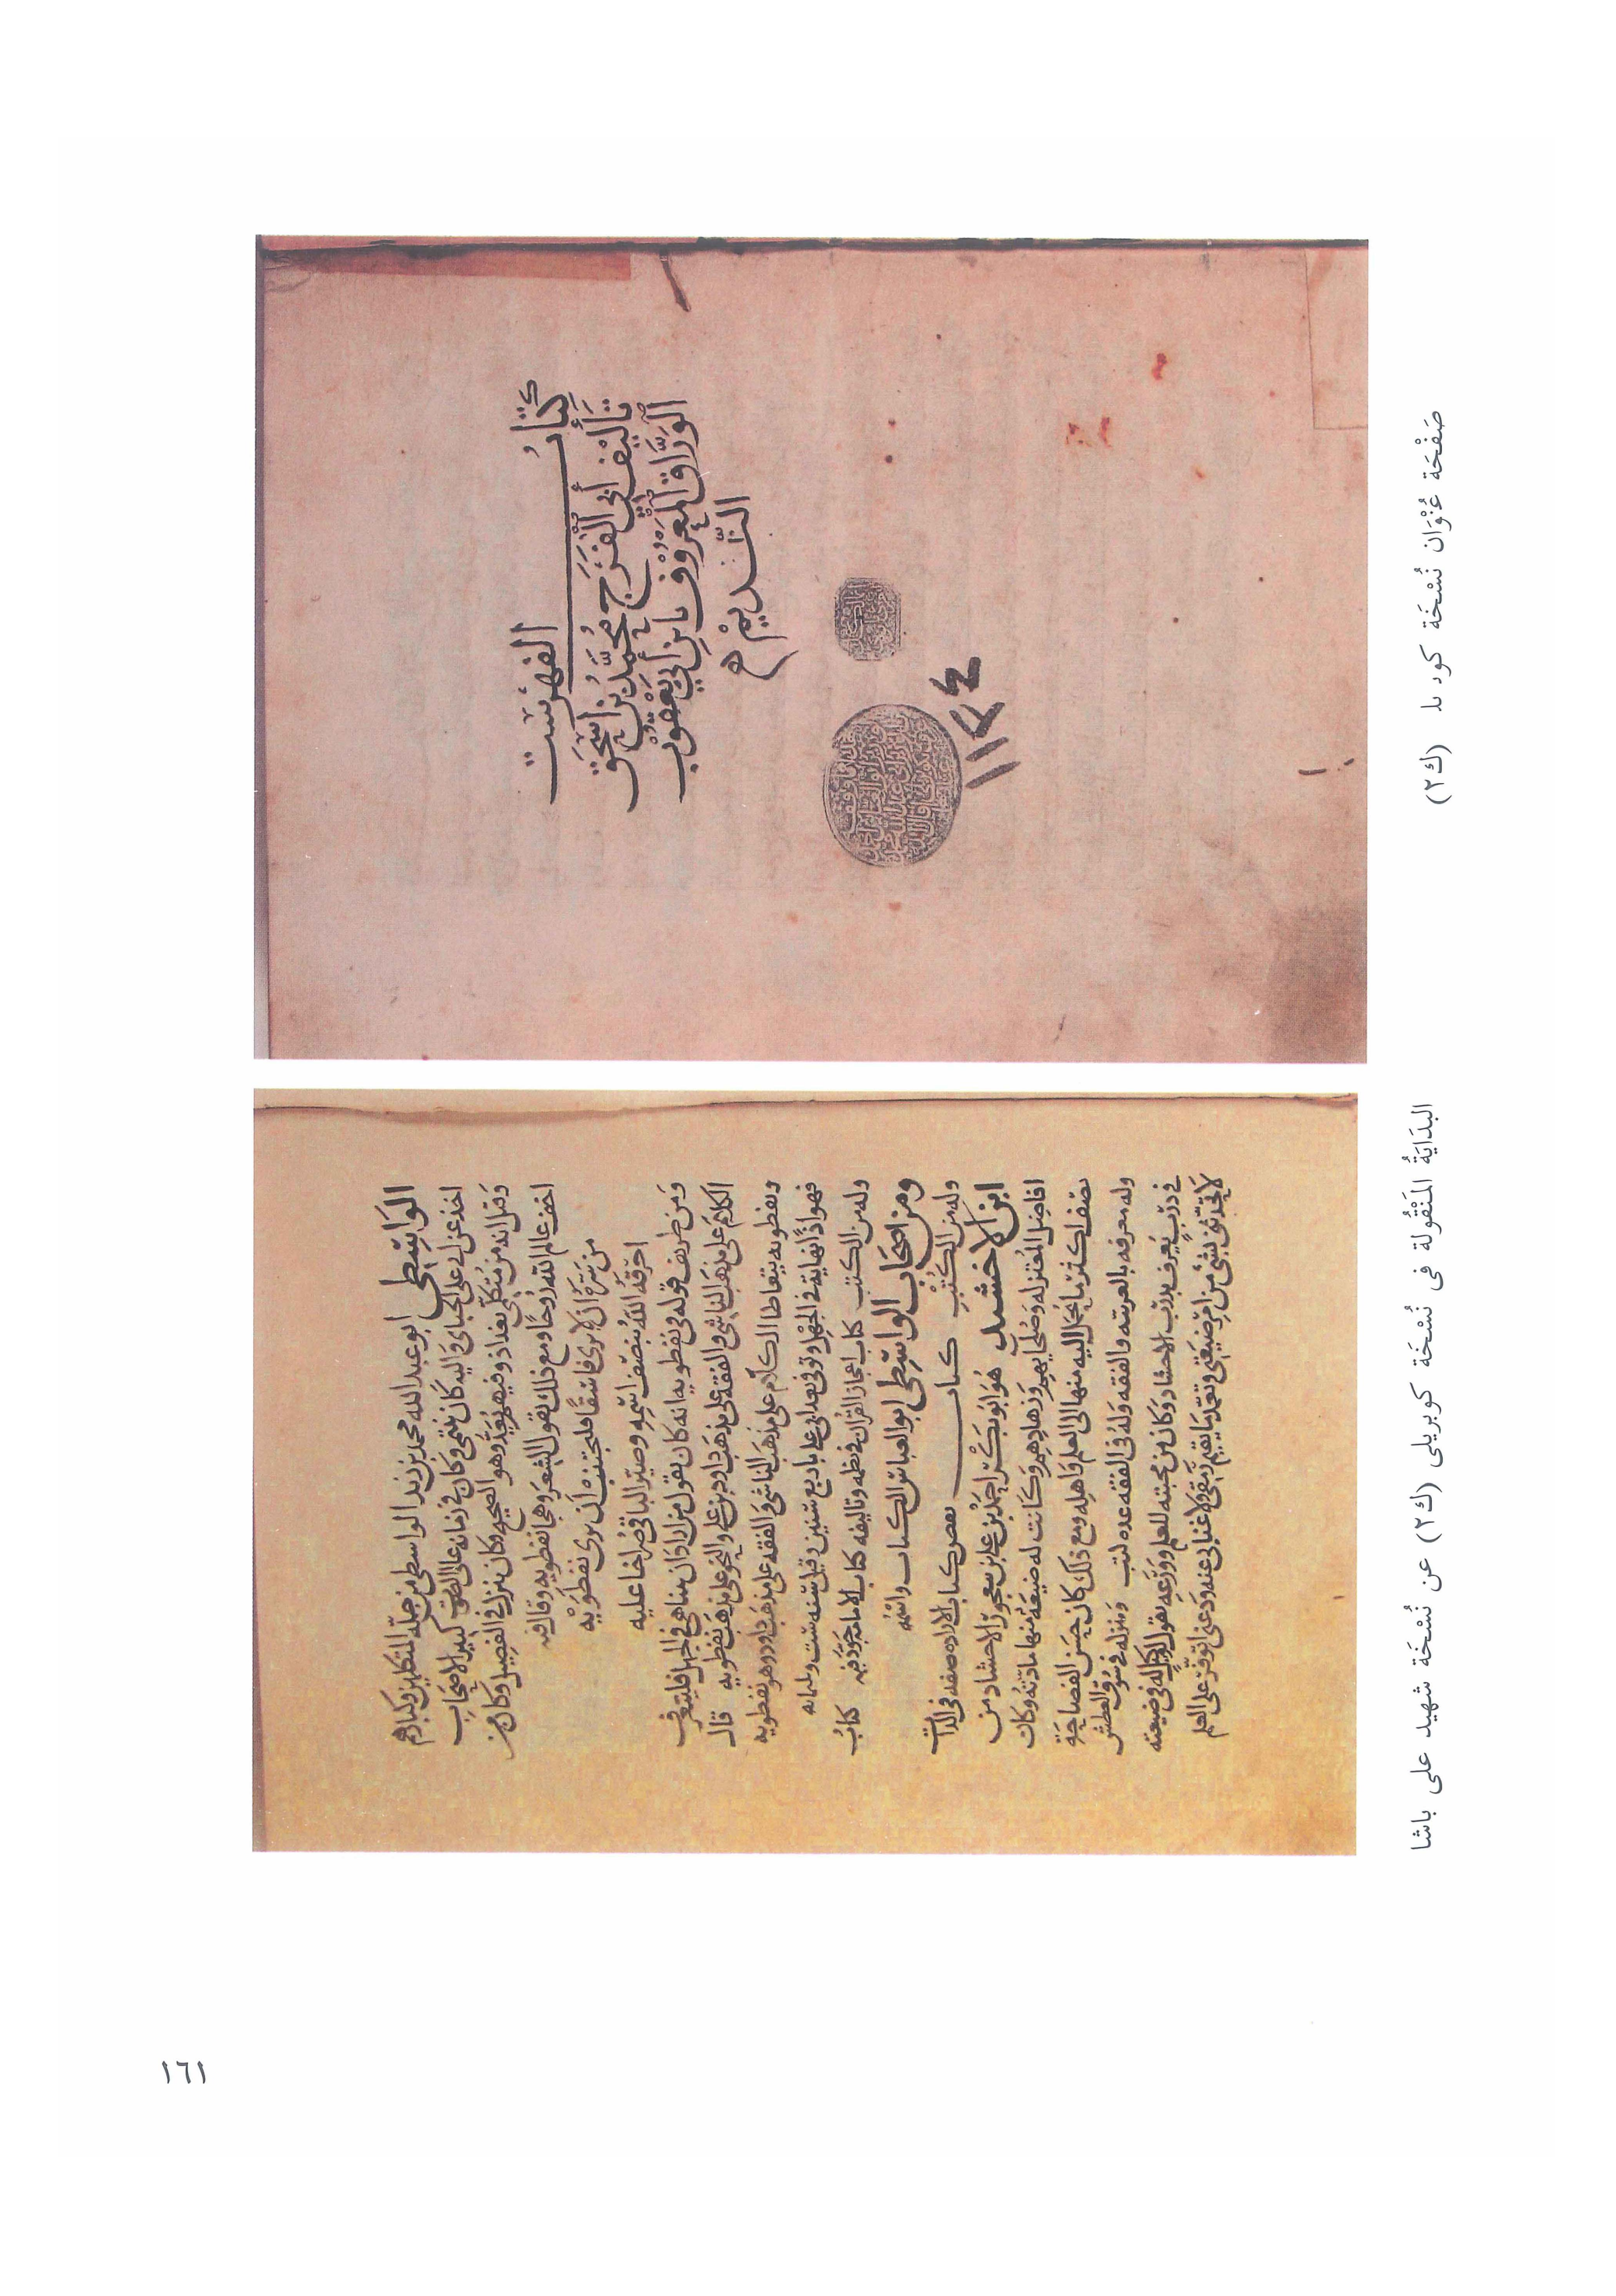 كِتَابُ الفهرست
تَأليْف أبي الفَرَج مُحمَّد بْن إسحق
الوَرَّاق المَعْرُوْف بابن أبي يَعْقوُب
النَّديْم
١١٣٤
صَفْحَة عُنْوَان نُسْخَة كوبريلى (ك٢)
الوَاسِطي ابو عبد الله محمد بن زيد الواسطي من جلة المتكلمين وكبارهم
اخذ عن ابي على الجبائي واليه كان ينتمي وكان في زمانه عالي الصوت كبير الاصحاب
وقيل انه من متكلمي بغداذ وفيهم يُعَدُّ وهو الصحيح وكان ينزل في الفصيل وكان من
اخف عالم الله رُوحًا ومع ذلك يقول الشعر وهجا نفطويه وقال فيه
من سَرَّهُ ان لا يرى فاسقًا فليجتنب أن يرى نفطويه
احرَقَهُ اللهُ بنصف اسمه وصَيَّر الباقي صُراخا عليه
وَمن طريف قوله في نفطويه انه كان يقول من اراد ان يتناهى في الجهل فليتعرف
الكلام على مذهب الناشي والفقه على مذهب داود بن علي والنحو على مذهب نفطويه قال
ونفطويه يتعاطا الكلام على مذهب الناشي والفقه على مذهب داود وهو نفطويه
فهو اذًا نهاية في الجهل وتوفى بعد ابي علي باربع سنين وقيل سنة ست وثلثمائة
وله من الكتب كتاب اعجاز القرآن في نظمه وتاليفه كتاب الامامة جَوَّد فيه كتابُ
ومن اصحاب الواسطي ابو العباس الكاتب واسْمُه
وله من الكُتُبِ كتاب نقض كتاب الاراده صفه في الذات
ابن الاخشيد هُوَ ابُو بَكْر احمد بن علي بن معجور الاخشاد من
افاضِل المعتزله وَصُلحايهم وزهادهم وكانت له ضيعَة منها مادته وكان
يصرف اكثر ما يحمل اليه منها الى العلم وَاهله ومع ذلك كان حسن الفصاحَة
وله معرفه بالعربيه والفقه وَلهُ في الفقه عده كتب ومنزله في سُوق العطش
في درب يَعرف بدرب الاخشاد وكان من محبته للعلم وورَعه يقول لوكيله في ضيعته
لا تحدثني بشَيْ من امر ضيعتي وتعمد ما يقيم رمقي ولا غنا بي عنه ودعني اتوفر على العلم
البدَايَةُ المَنْقُولَة فى نُسْخَة كوبريلى (ك٢) عن نُسْخَة شهيد على باشا
١٦١